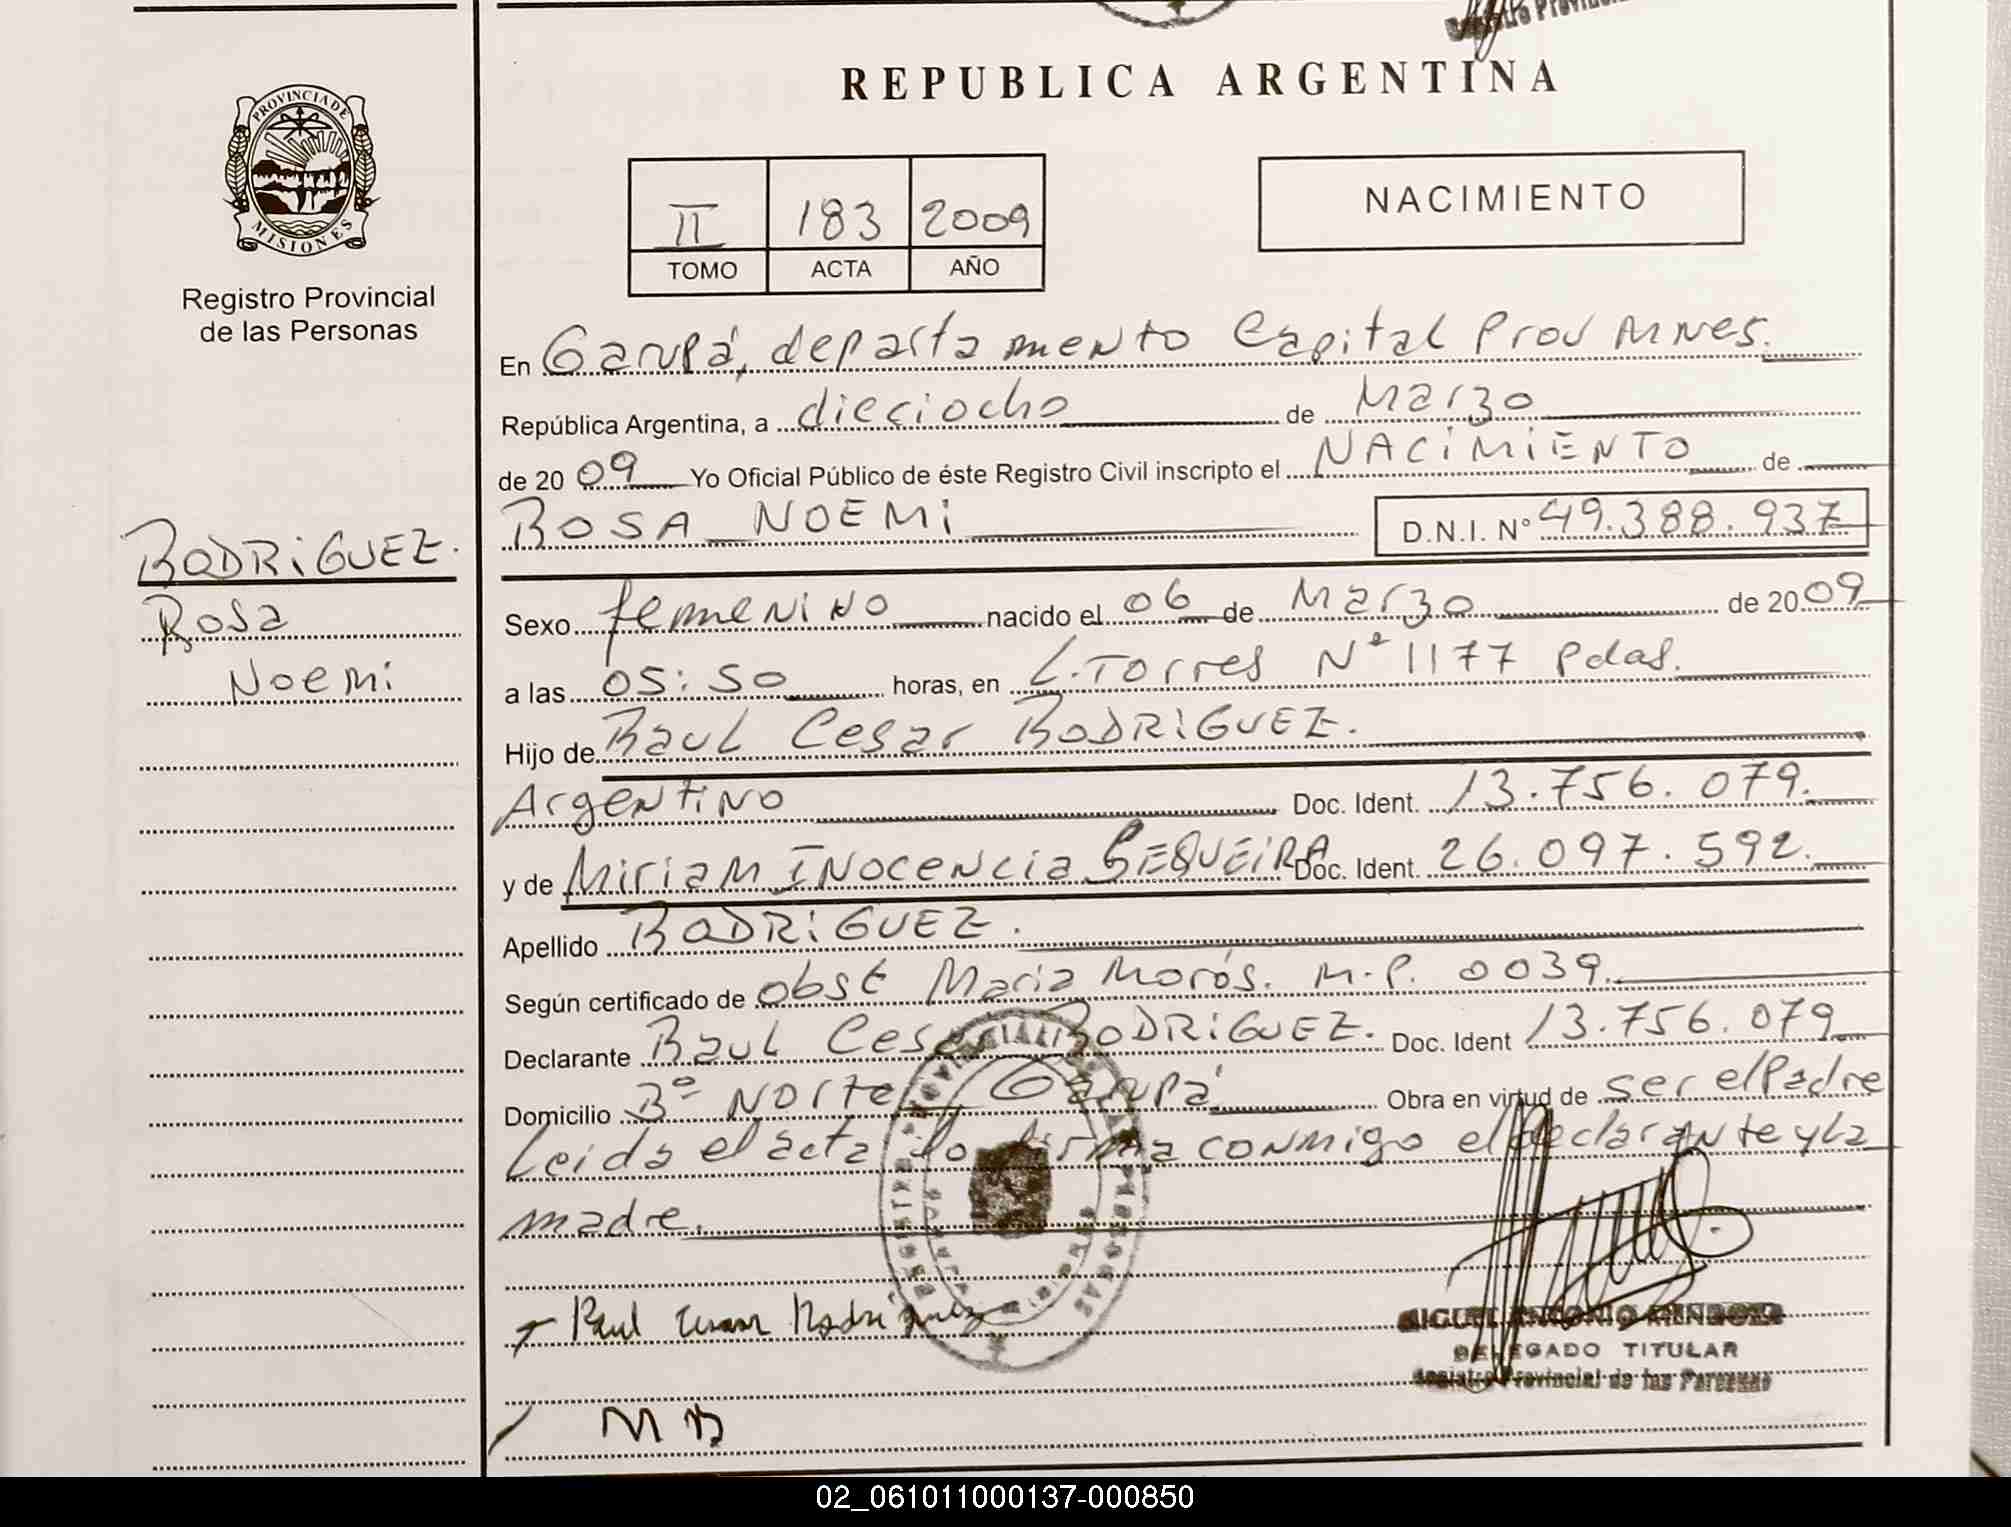 REPUBLICA ARGENTINA
PROVINCIA DE
MISIONES
Registro Provincial
de las Personas
II 183 2009
TOMO ACTA AÑO
NACIMIENTO
En Garupá, departamento Capital Prov MNes.
República Argentina, a dieciocho de Marzo
de 2009 Yo Oficial Público de éste Registro Civil inscripto el NACIMIENTO de
ROSA NOEMI D.N.I. Nº 49.388.937
RODRIGUEZ.
Rosa
Noemi
Sexo femenino nacido el 06 de Marzo de 2009
a las 05:50 horas, en L. Torres Nº 1177 Pdas.
Hijo de Raul Cesar RODRIGUEZ.
Argentino Doc. Ident. 13.756.079.
y de Miriam Inocencia SEQUEIRA Doc. Ident. 26.097.592.
Apellido RODRIGUEZ.
Según certificado de obst Maria Morós. M.P. 0039.
Declarante Raul Cesar RODRIGUEZ. Doc. Ident 13.756.079
Domicilio Bº Norte Garupá Obra en virtud de ser el Padre
Leida el acta lo firma conmigo el declarante y la
madre.
Raul Cesar Rodriguez
MIGUEL ANTONIO MENDOZA
DELEGADO TITULAR
Registro Provincial de las Personas
02_061011000137-000850